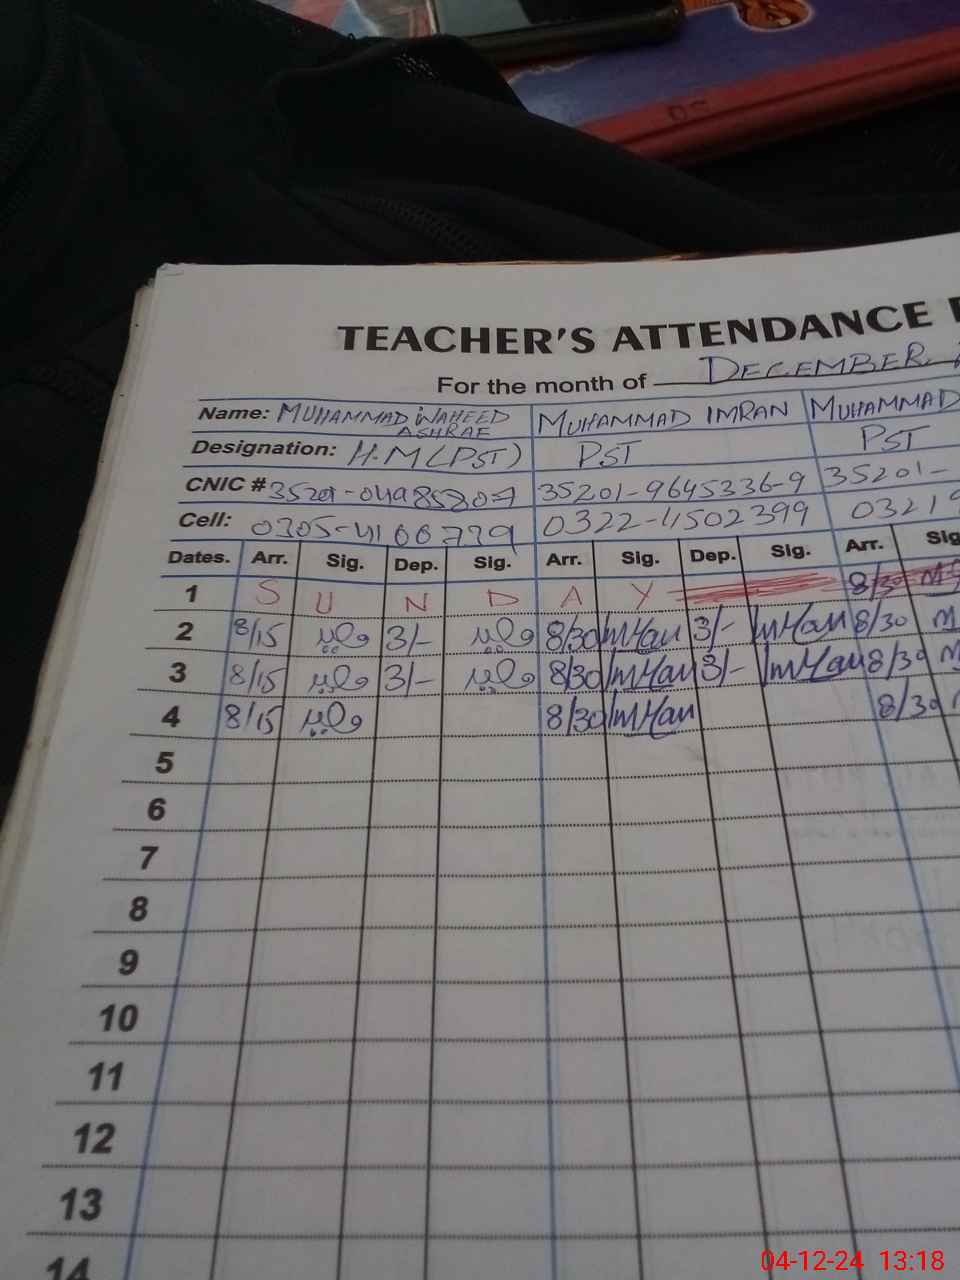 TEACHER'S ATTENDANCE
For the month of DECEMBER
Name: MUHAMMAD WAHEED ASHRAF MUHAMMAD IMRAN MUHAMMAD
Designation: H.M(PST) PST PST
CNIC # 35201-9645336-9 35201-
Cell: 0322-4502399 03219
Dates. Arr. Sig. Dep. Sig. Arr. Sig. Dep. Sig. Arr. Sig
1 S U N D A Y 8/30
2 8/15 وحید 3/- وحید 8/30 Imran 3/- Imran 8/30 M
3 8/15 وحید 3/- وحید 8/30 Imran 3/- Imran 8/30 M
4 8/15 وحید 8/30 Imran 8/30
5
6
7
8
9
10
11
12
13
14
04-12-24 13:18